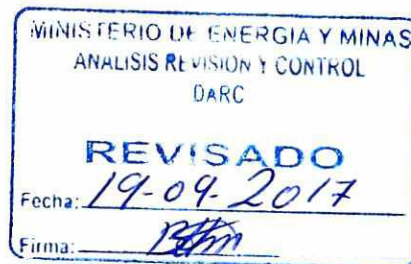 MINISTERIO DE ENERGIA Y MINAS
ANALISIS REVISION Y CONTROL
DARC
REVISADO
Fecha: 19-09-2017
Firma: